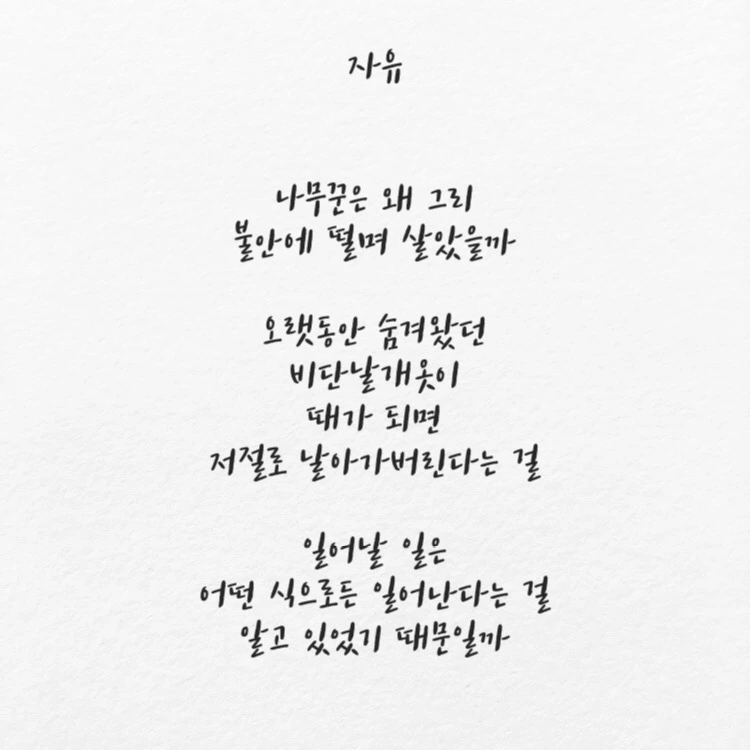 자유
나무꾼은 왜 그리
불안에 떨며 살았을까
오랫동안 숨겨왔던
비단날개옷이
때가 되면
저절로 날아가버린다는 걸
일어날 일은
어떤 식으로든 일어난다는 걸
알고 있었기 때문일까